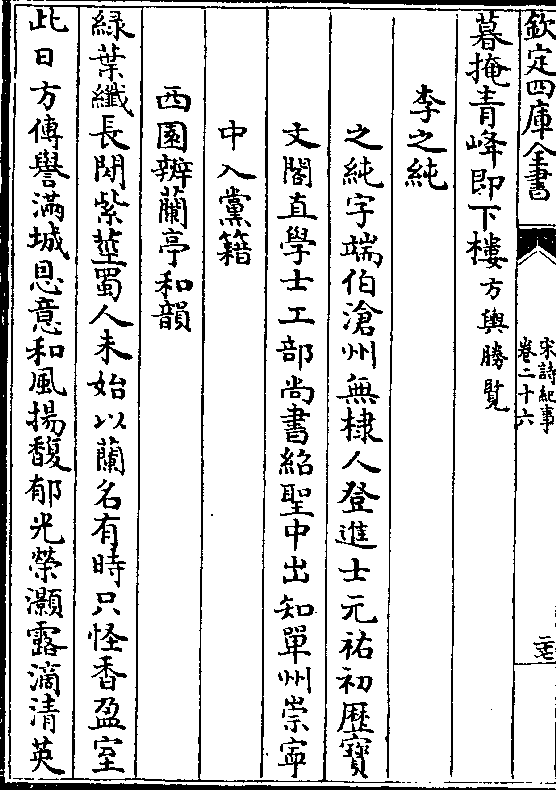 欽定四庫全書
宋詩紀事
卷二十六
暮掩青峰即下樓方輿勝覽
李之純
之純字端伯滄州無棣人登進士元祐初歴寶
文閣直學士工部尚書紹聖中出知單州崇寧
中入黨籍
西園辨蘭亭和韻
綠葉纎長閒紫莖蜀人未始以蘭名有時只怪香盈室
此日方傳譽滿城恩意和風揚馥郁光榮灝露滴清英